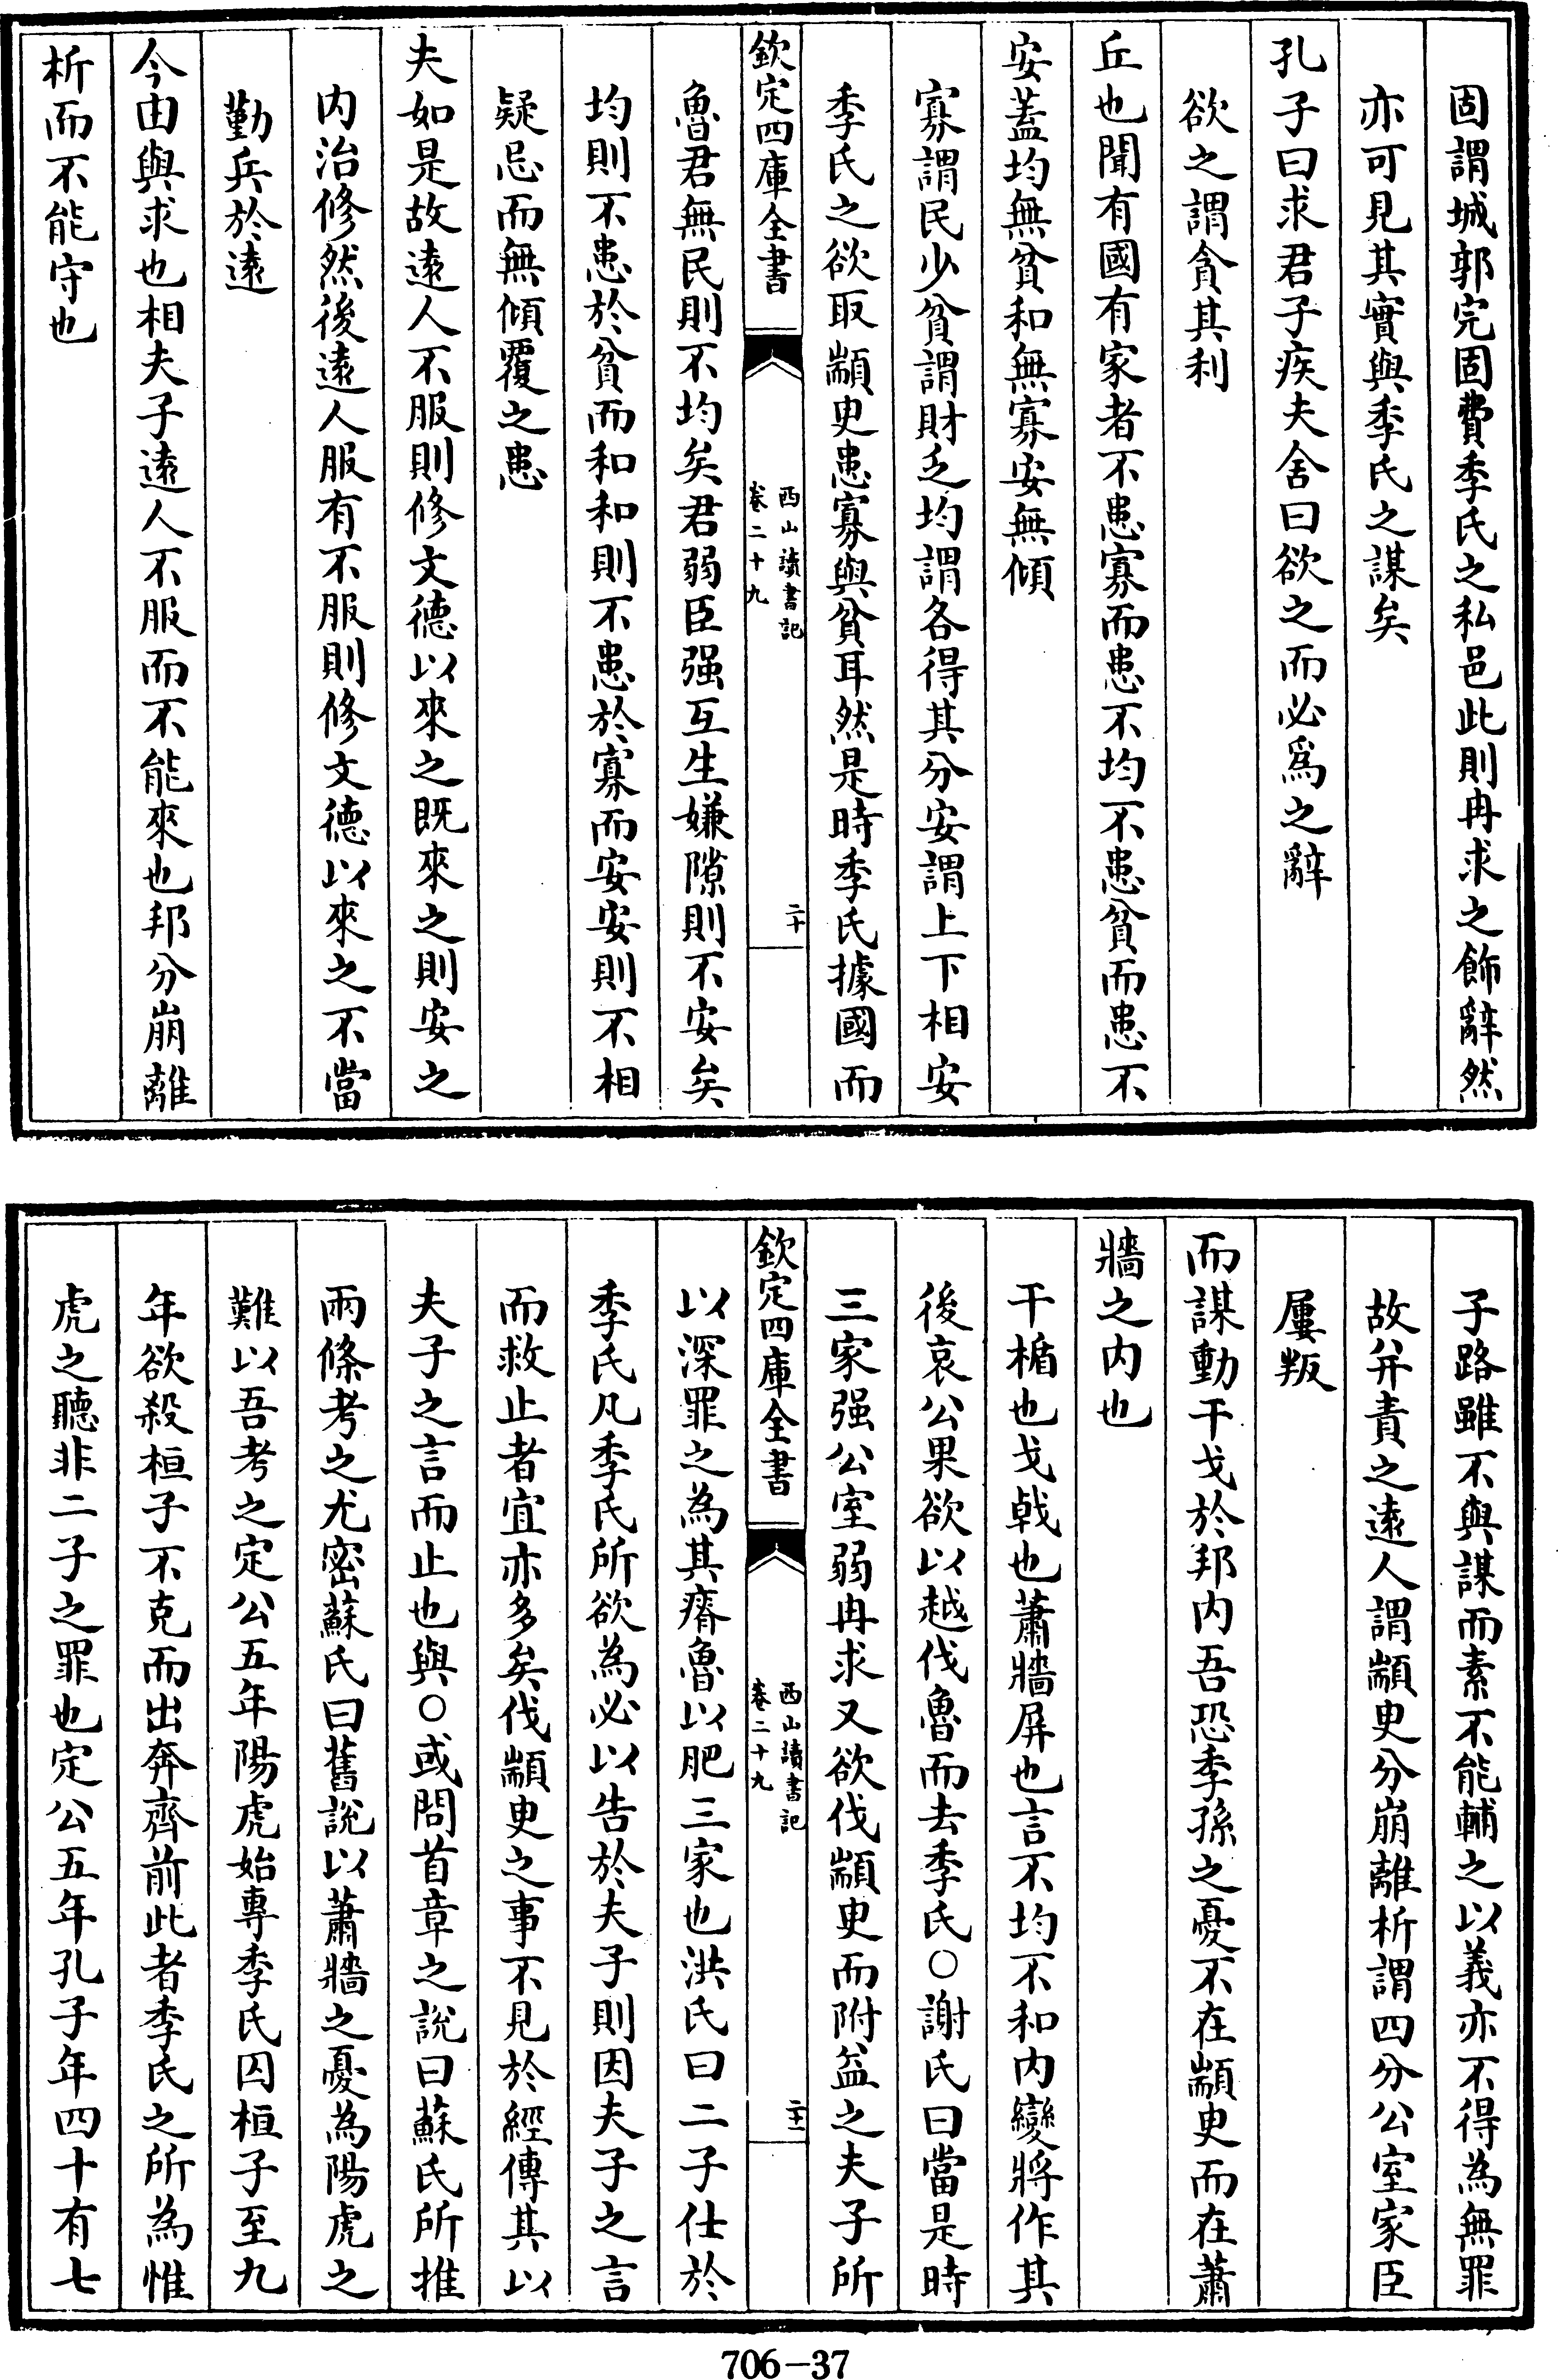 固謂城郭完固費季氏之私邑此則冉求之飾辭然
亦可見其實與季氏之謀矣
孔子曰求君子疾夫舍曰欲之而必爲之辭
欲之謂貪其利
丘也聞有國有家者不患寡而患不均不患貧而患不
安蓋均無貧和無寡安無傾
寡謂民少貧謂財乏均謂各得其分安謂上下相安
季氏之欲取顓臾患寡與貧耳然是時季氏據國而
欽定四庫全書
西山讀書記
卷二十九
二十
魯君無民則不均矣君弱臣强互生嫌隙則不安矣
均則不患於貧而和和則不患於寡而安安則不相
疑忌而無傾覆之患
夫如是故遠人不服則修文德以來之既來之則安之
内治修然後遠人服有不服則修文德以來之不當
勤兵於遠
今由與求也相夫子遠人不服而不能來也邦分崩離
析而不能守也
子路雖不與謀而素不能輔之以義亦不得為無罪
故并責之遠人謂顓臾分崩離析謂四分公室家臣
屢叛
而謀動干戈於邦内吾恐季孫之憂不在顓臾而在蕭
牆之内也
干楯也戈戟也蕭牆屏也言不均不和内變將作其
後哀公果欲以越伐魯而去季氏○謝氏曰當是時
三家强公室弱冉求又欲伐顓臾而附益之夫子所
欽定四庫全書
西山讀書記
卷二十九
二十一
以深罪之為其瘠魯以肥三家也洪氏曰二子仕於
季氏凡季氏所欲為必以告於夫子則因夫子之言
而救止者宜亦多矣伐顓臾之事不見於經傳其以
夫子之言而止也與○或問首章之說曰蘇氏所推
兩條考之尤密蘇氏曰舊說以蕭牆之憂為陽虎之
難以吾考之定公五年陽虎始專季氏囚桓子至九
年欲殺桓子不克而出奔齊前此者季氏之所為惟
虎之聽非二子之罪也定公五年孔子年四十有七
706-37